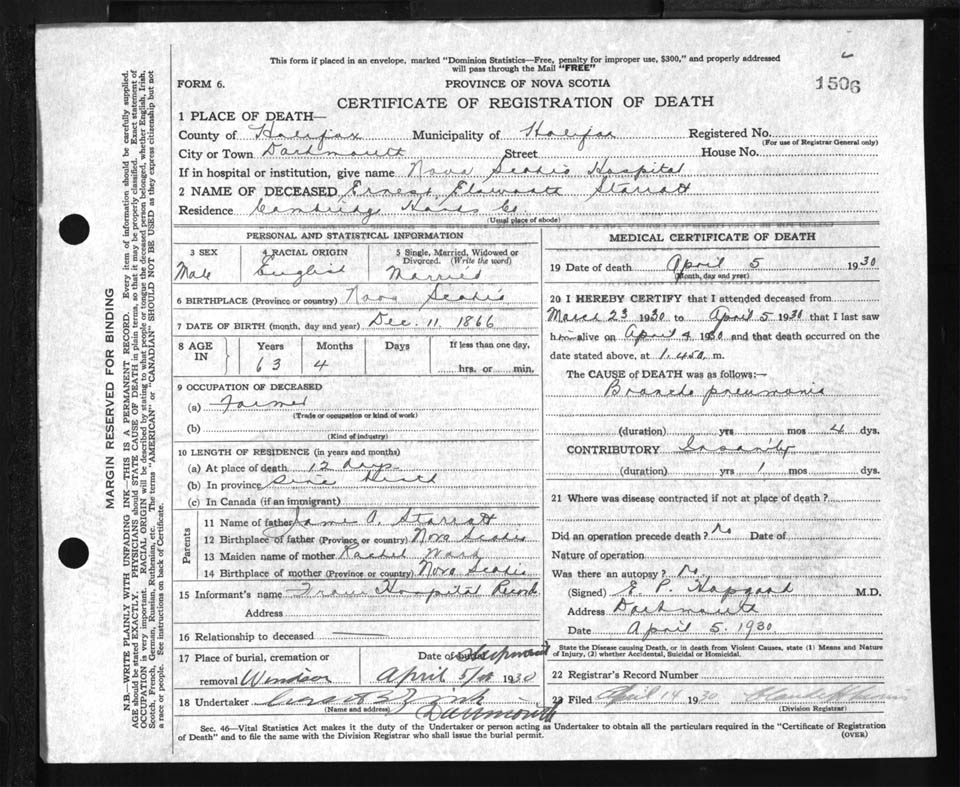 This form if placed in an envelope, marked "Dominion Statistics—Free, penalty for improper use, $300," and properly addressed
will pass through the Mail "FREE"
FORM 6.
PROVINCE OF NOVA SCOTIA
1506
CERTIFICATE OF REGISTRATION OF DEATH
1 PLACE OF DEATH—
County of Halifax Municipality of Halifax Registered No.
(For use of Registrar General only)
City or Town Dartmouth Street House No.
If in hospital or institution, give name Nova Scotia Hospital
2 NAME OF DECEASED Ernest Starratt
Residence Hants Co
(Usual place of abode)
PERSONAL AND STATISTICAL INFORMATION
3 SEX
Male
4 RACIAL ORIGIN
English
5 Single, Married, Widowed or
Divorced. (Write the word)
Married
6 BIRTHPLACE (Province or country) Nova Scotia
7 DATE OF BIRTH (month, day and year) Dec. 11. 1866
8 AGE
IN
Years
63
Months
4
Days
If less than one day,
hrs. or min.
9 OCCUPATION OF DECEASED
(a) Farmer
(Trade or occupation or kind of work)
(b)
(Kind of industry)
10 LENGTH OF RESIDENCE (in years and months)
(a) At place of death 12 days
(b) In province since birth
(c) In Canada (if an immigrant)
Parents
11 Name of father James A. Starratt
12 Birthplace of father (Province or country) Nova Scotia
13 Maiden name of mother Rachel
14 Birthplace of mother (Province or country) Nova Scotia
15 Informant's name From Hospital Records
Address
16 Relationship to deceased —
17 Place of burial, cremation or Date of burial Shipment
removal Windsor April 5/ 1930
18 Undertaker
(Name and address) Dartmouth
MEDICAL CERTIFICATE OF DEATH
19 Date of death April 5 1930
(Month, day and year)
20 I HEREBY CERTIFY that I attended deceased from
March 23 1930 to April 5 1930 that I last saw
him alive on April 4 1930 and that death occurred on the
date stated above, at 1.45 a m.
The CAUSE of DEATH was as follows:—
Broncho pneumonia
(duration) yrs mos 4 dys.
CONTRIBUTORY Insanity
(duration) yrs 1 mos dys.
21 Where was disease contracted if not at place of death?
Did an operation precede death? No Date of
Nature of operation
Was there an autopsy? No
(Signed) E. P. Hopgood M.D.
Address Dartmouth
Date April 5. 1930.
State the Disease causing Death, or in death from Violent Causes, state (1) Means and Nature
of Injury, (2) whether Accidental, Suicidal or Homicidal.
22 Registrar's Record Number
23 Filed April 14 1930
(Division Registrar)
Sec. 46—Vital Statistics Act makes it the duty of the Undertaker or person acting as Undertaker to obtain all the particulars required in the "Certificate of Registration
of Death" and to file the same with the Division Registrar who shall issue the burial permit.
(OVER)
MARGIN RESERVED FOR BINDING
N.B.—WRITE PLAINLY WITH UNFADING INK—THIS IS A PERMANENT RECORD. Every item of information should be carefully supplied.
AGE should be stated EXACTLY. PHYSICIANS should STATE CAUSE OF DEATH in plain terms, so that it may be properly classified. Exact statement of
OCCUPATION is very important. RACIAL ORIGIN will be described by stating to what people or tongue the deceased person belonged, whether English, Irish,
Scotch, French, German, Russian, Ruthenian, etc. The terms "AMERICAN" or "CANADIAN" SHOULD NOT BE USED as they express citizenship but not
a race or people. See instructions on back of Certificate.